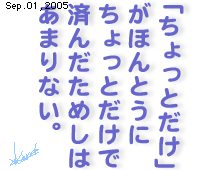 Sep.01, 2005
「ちょっとだけ」
がほんとうに
ちょっとだけで
済んだためしは
あまりない。